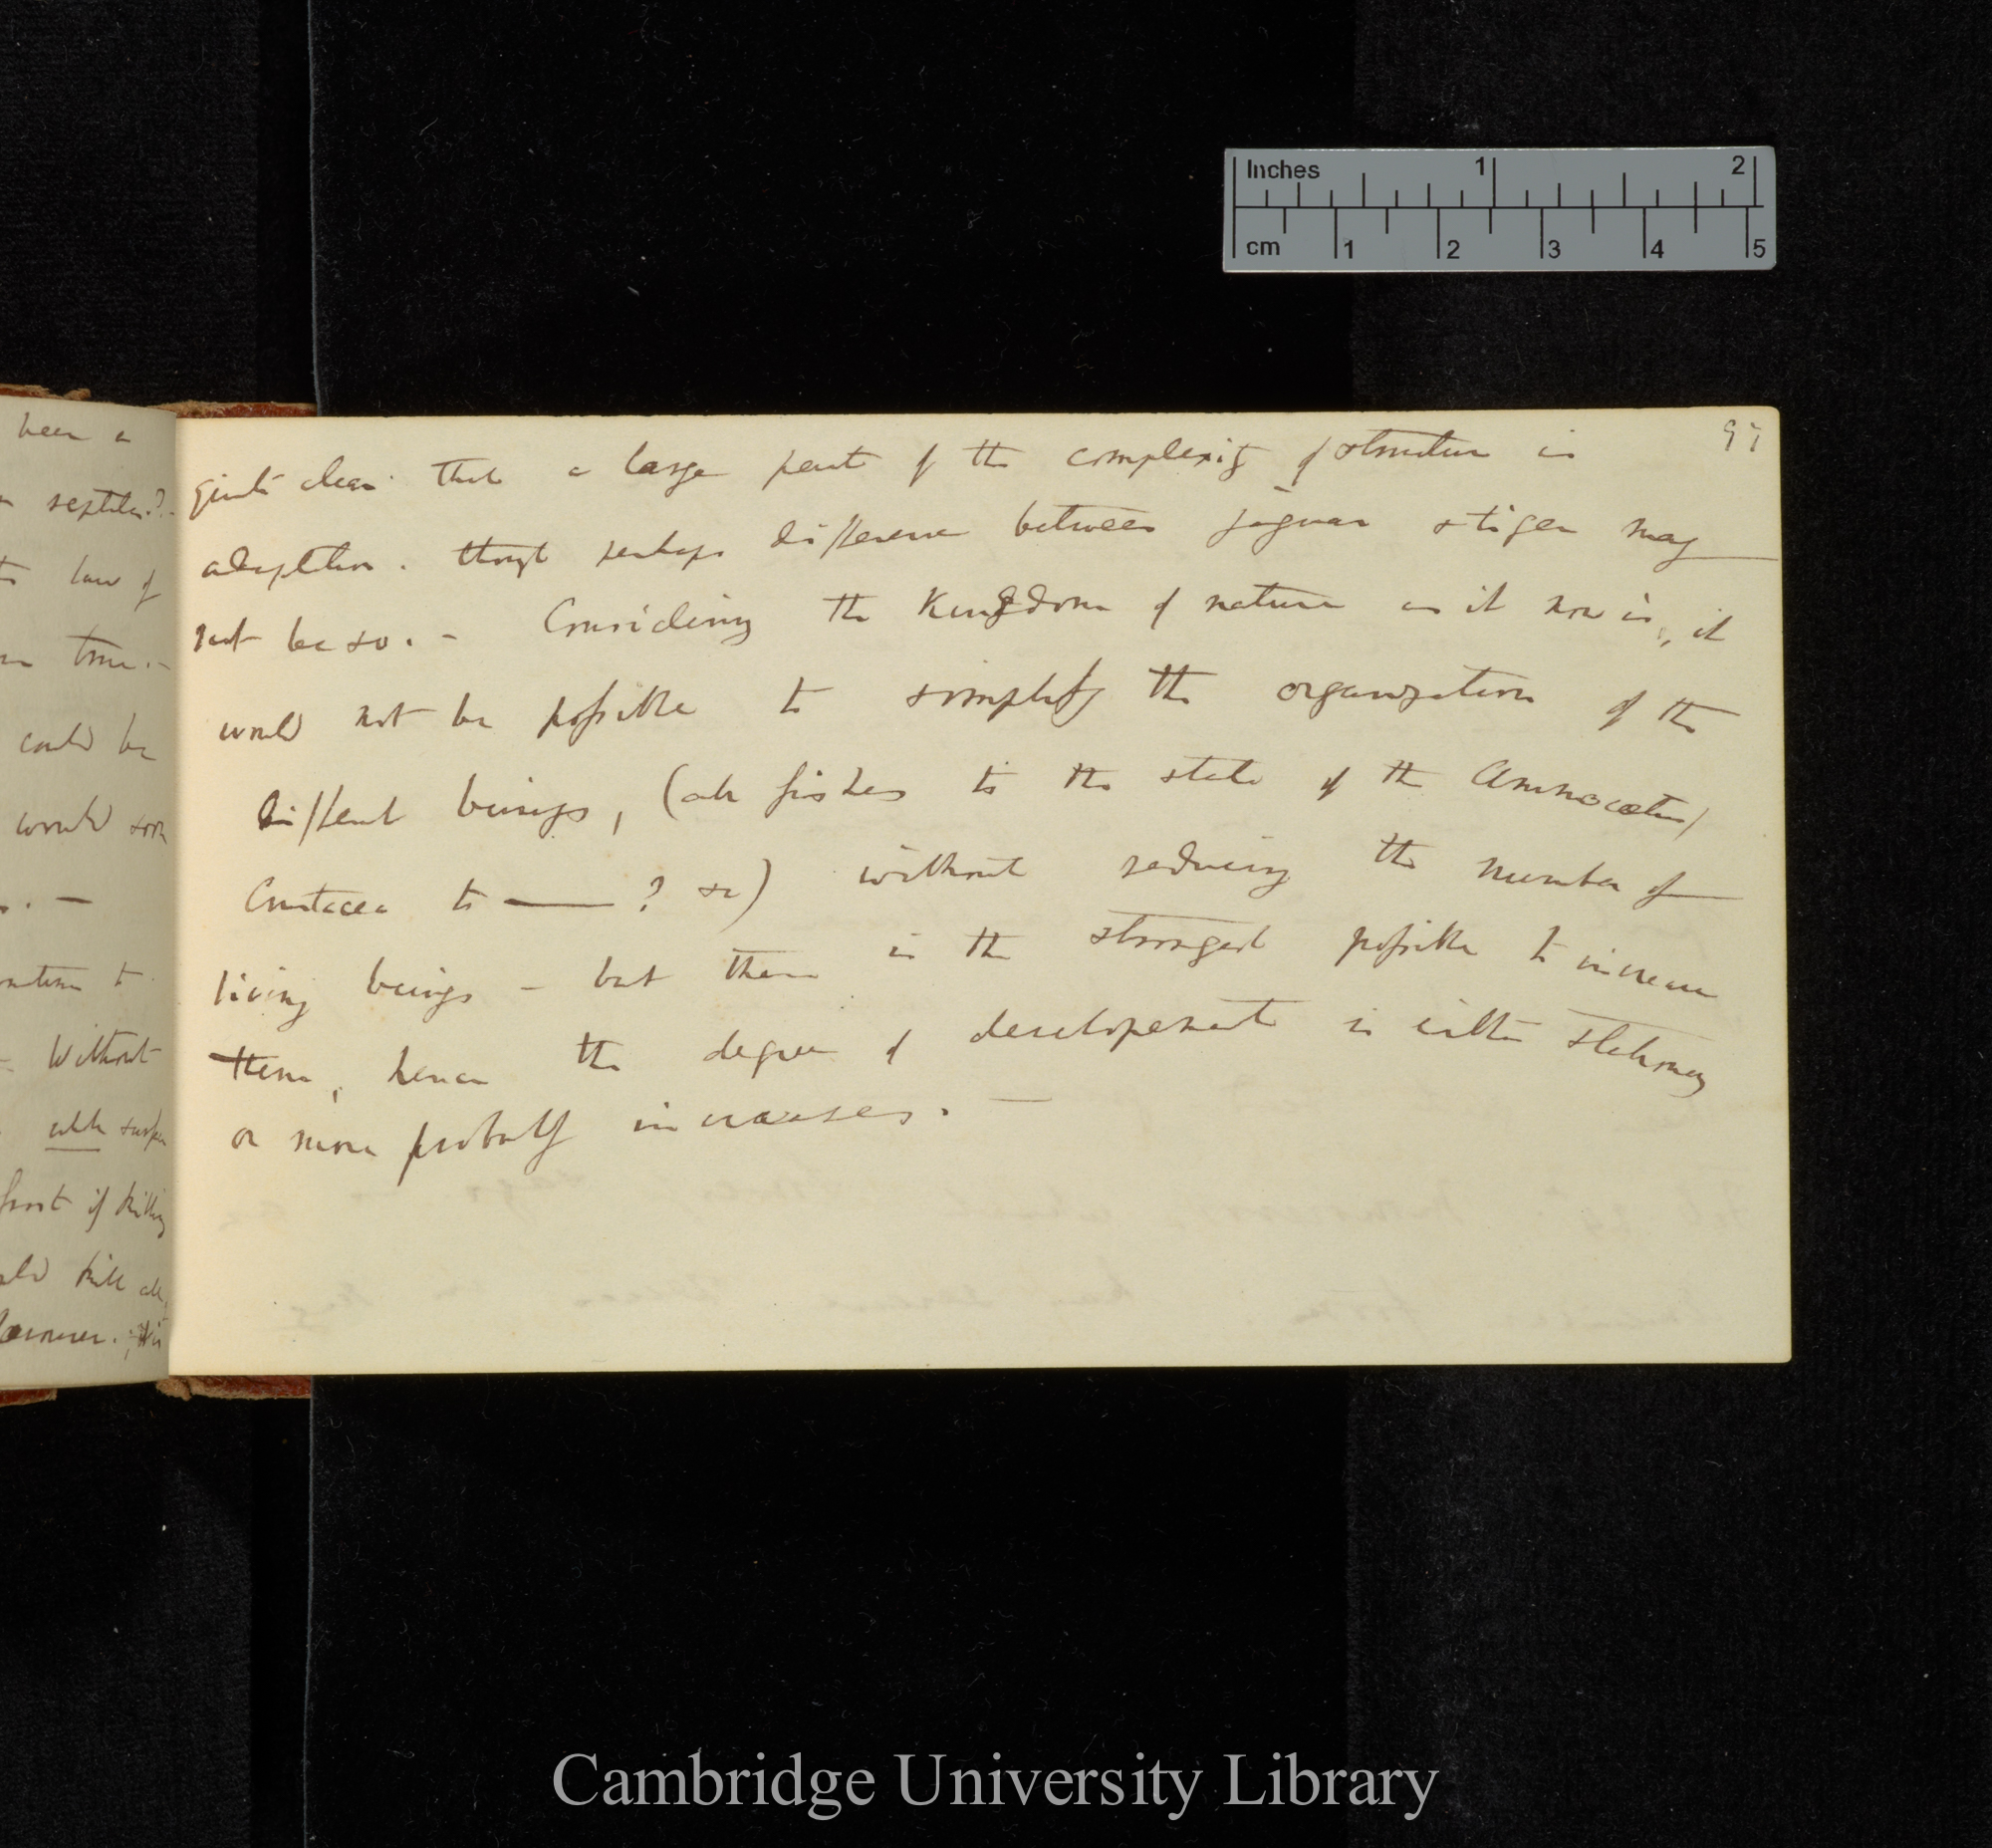 97
quite clear that a large part of the complexity of structure is
adaptation. though perhaps difference between jaguar & tiger may
not be so. — Considering the Kingdom of nature as it now is, it
would not be possible to simplify the organization of the
different beings, (all fishes to the state of the Ammocœtus,
Crustacea to — ? &c) without reducing the number of
living beings — but there is the strongest possible to increase
them, hence the degree of developement is either stationary
or more probably increases. —
been a
reptiles?.
law of
true. —
could be
would soon
to
Without
frost if killing
kill all
Inches 1 2
cm 1 2 3 4 5
Cambridge University Library